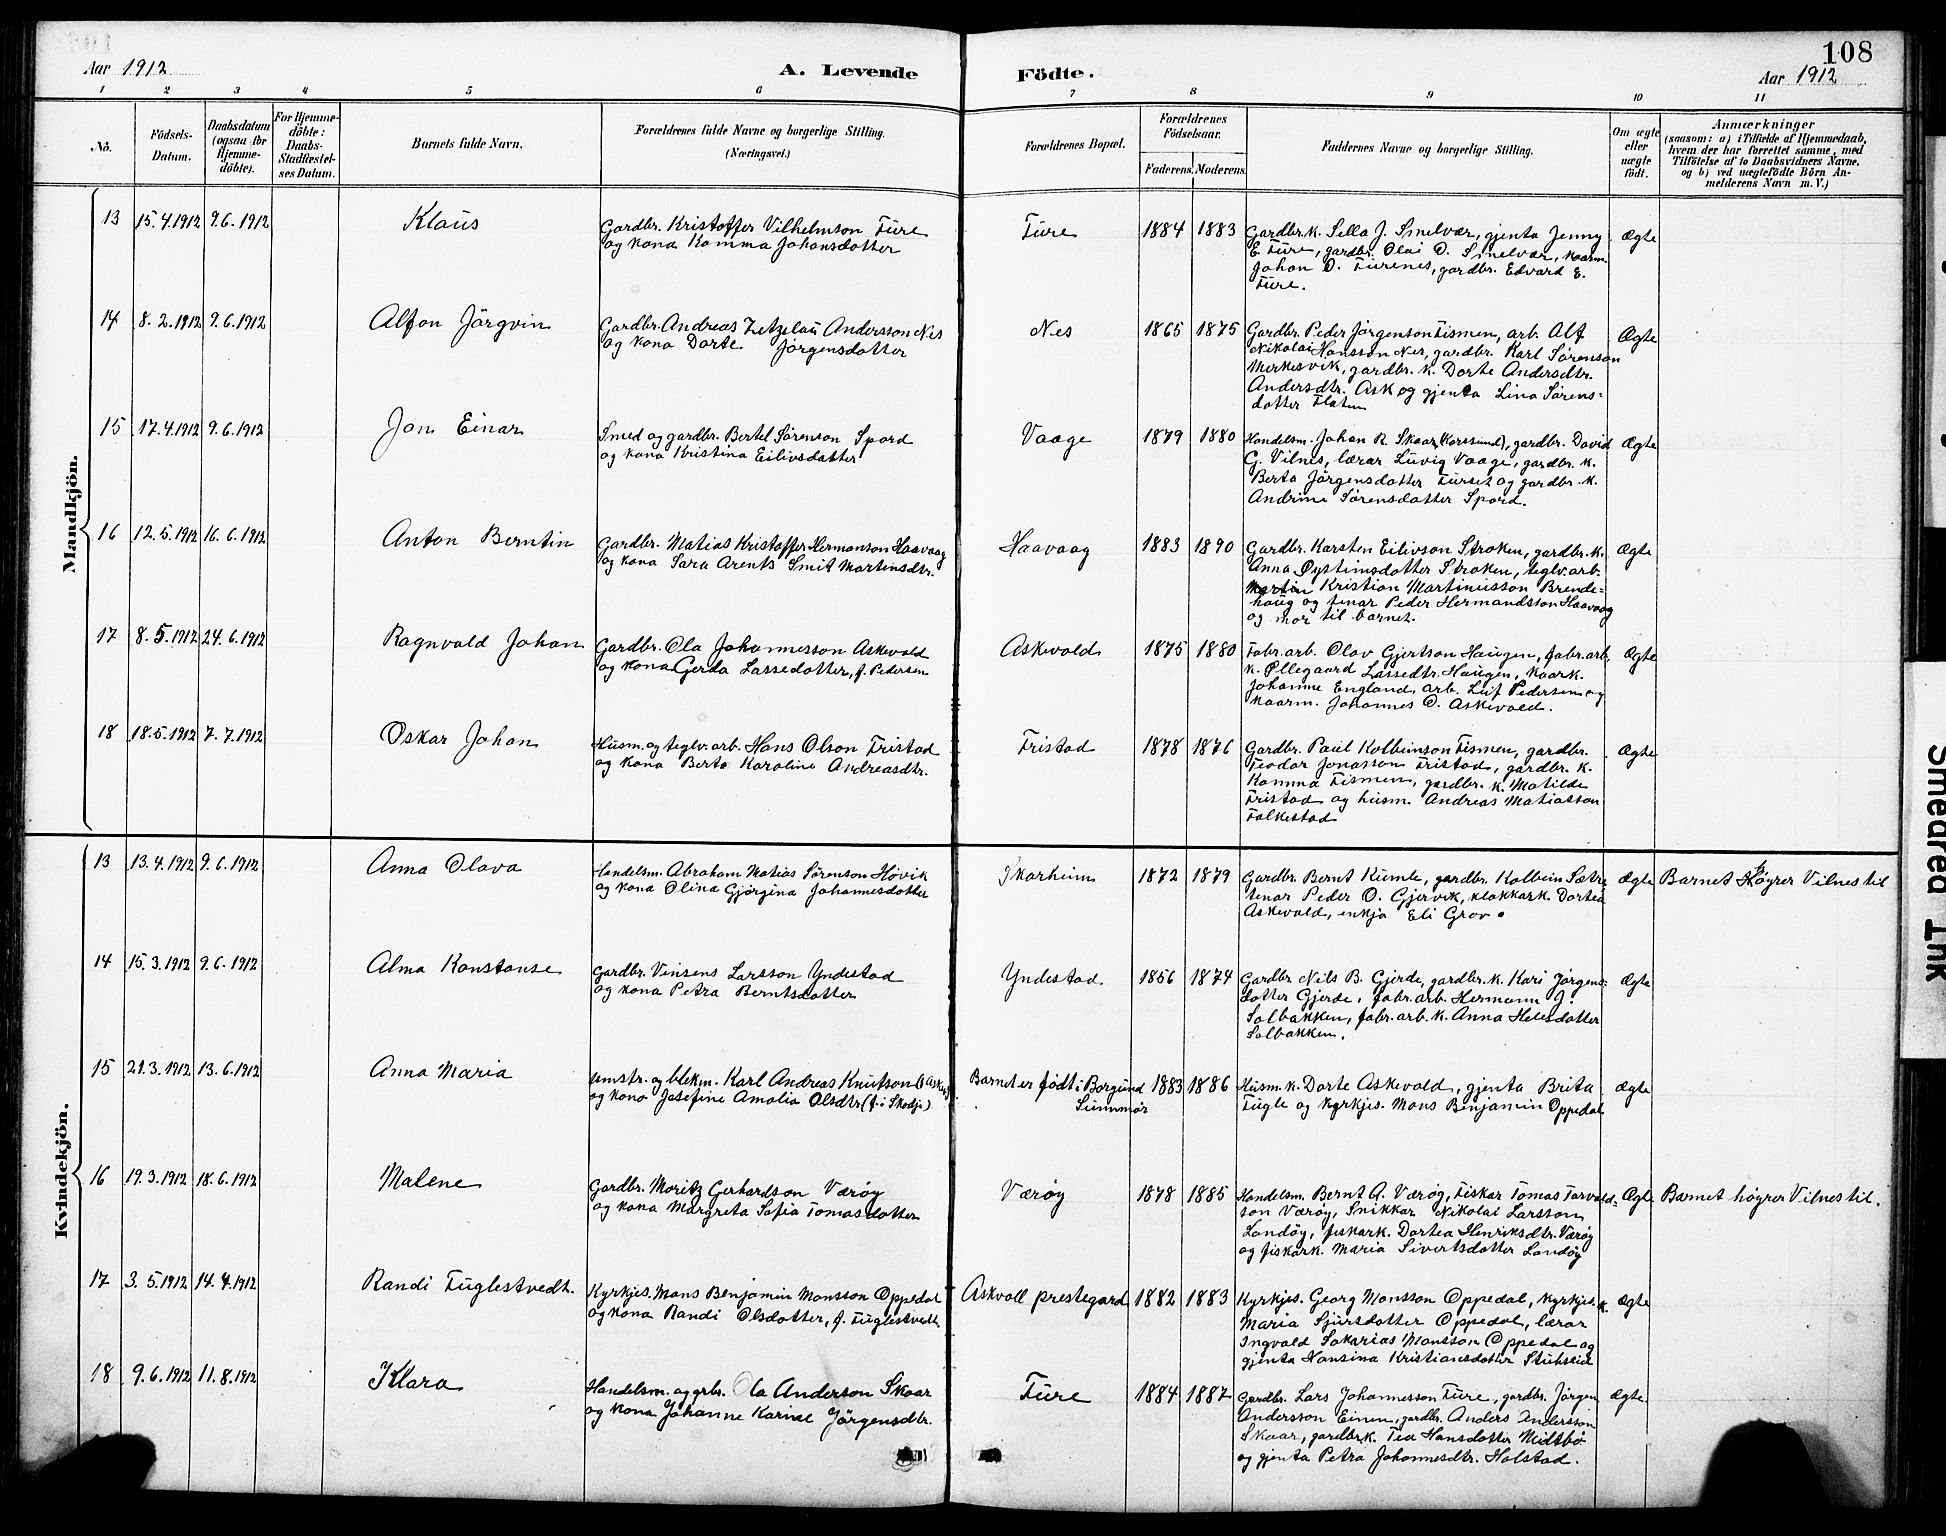 108
Aar 1912
A. Levende
Födte.
Aar 1912
1 2 3 4 5 6 7 8 9 10 11
No.
Födsels-
Datum.
Daabsdatum
(ogsaa for
Hjemme-
döbte).
For Hjemme-
döbte:
Daabs-
Stadfæstel-
ses Datum.
Barnets fulde Navn.
Forældrenes fulde Navne og borgerlige Stilling.
(Næringsvei.)
Forældrenes Bopæl.
Forældrenes
Födselsaar.
Faderens. Moderens.
Faddernes Navne og borgerlige Stilling.
Om ægte
eller
uægte
födt.
Anmærkninger
(saasom: a) i Tilfælde af Hjemmedaab,
hvem der har forrettet samme, med
Tilföielse af to Daabsvidners Navne,
og b) ved uægtefödte Börn An-
melderens Navn m. V.)
Mandkjön.
13 15.4.1912 9.6.1912 Klaus
Gardbr. Kristoffer Vilhelmson Fure
og kona Komma Johansdotter
Fure 1884 1883
Gardbr.k. Sella J. Smelvær, gjenta Jenny
E. Fure, gardbr. Olai O. Smelvær, kaarm.
Johan D. Furenes, gardbr. Edvard E.
Fure.
Ægte
14 8.2.1912 9.6.1912 Alfon Jörgvin
Gardbr. Andreas Zetzelau Andersson Nes
og kona Dorte Jørgensdotter
Nes 1865 1875
Gardbr. Peder Jørgenson Fismen, arb. Alf
Nikolai Hansson Nes, gardbr. Karl Sørenson
Merkesvik, gardbr. k. Dorte Andersdtr.
Andersdtr. Ask og gjenta Lina Sørens-
dotter Flaten
Ægte
15 17.4.1912 9.6.1912 Jon Einar
Smed og gardbr. Bertel Sørenson Spord
og kona Kristina Eilivsdatter
Vaage 1879 1880
Handelsm. Johan R. Skaar (Korssund), gardbr. David
G. Vilnes, lærar Luvig Vaage, gardbr. k.
Berta Jørgensdotter Furset og gardbr. k.
Andrine Sørensdotter Spord.
Ægte
16 12.5.1912 16.6.1912 Anton Berntin
Gardbr. Matias Kristoffer Hermanson Haavaag
og kona Sara Arents Smit Martinsdtr.
Haavaag 1883 1890
Gardbr. Karsten Eilivson Stroken, gardbr. k.
Anna Øysteinsdotter Stroken, teglv.arb.
Martin Kristian Martinusson Brende-
haug og tenar Peder Hermandsson Haavaag
og mor til barnet.
Ægte
17 8.5.1912 24.6.1912 Ragnvald Johan
Gardbr. Ola Johannesson Askevold
og kona Gerda Lassedotter, f. Pedersen
Askevold 1875 1880
Fabr.arb. Olav Gjertson Haugen, fabr.arb.
k. Øllegaard Lassedtr. Haugen, kaark.
Johanne England, arb. Leif Pedersen og
kaarm. Johannes O. Askevold.
Ægte
18 18.5.1912 7.7.1912 Oskar Johan
Husm. og teglv.arb. Hans Olson Fristad
og kona Berte Karoline Andreasdtr.
Fristad 1878 1876
Gardbr. Paul Kolbeinson Fismen, gardbr.
Teodor Jonasson Fristad, gardbr. k.
Komma Fismen, gardbr. k. Matilde
Fristad og husm. Andreas Matiasson
Falkestad
Ægte
Kvindekjön.
13 13.4.1912 9.6.1912 Anna Olava
Handelsm. Abraham Matias Sørenson Høvik
og kona Olina Gjørgina Johannesdotter
Skarheim 1872 1879
Gardbr. Bernt Kumle, gardbr. Kolbein Sætre
tenar Peder O. Gjervik, klokkark. Dortea
Askevold, enkja Eli Grov.
Ægte
Barnet høyrer Vilnes til
14 15.3.1912 9.6.1912 Alma Konstanse
Gardbr. Vinsens Larsson Yndestad
og kona Petra Berntsdotter
Yndestad 1856 1874
Gardbr. Nils B. Gjerde, gardbr. k. Kari Jørgens-
dotter Gjerde, fabr.arb. Hermann J.
Solbakken, fabr.arb. k. Anna Helesdotter
Solbakken.
Ægte
15 21.3.1912 13.6.1912 Anna Maria
og blekm. Karl Andreas Knutson
og kona Josefine Amalia Olsdtr. (f. i Skodje)
Barnet er født i Borgund
Sunnmør
1883 1886
Husm. k. Dorte Askevold, gjenta Brita
Fugle og kyrkjes. Mons Benjamin Oppedal
Ægte
16 19.3.1912 18.6.1912 Malene
Gardbr. Moritz Gerhardson Værøy
og kona Margreta Sofia Tomasdotter
Værøy 1878 1885
Handelsm. Bernt A. Værøy, Fiskar Tomas Torvald-
son Værøy, Snikkar Nikolai Larsson
Landøy, fiskark. Dortea Henriksdtr. Værøy
og fiskark. Maria Sivertsdotter Landøy
Ægte
Barnet høyrer Vilnes til.
17 3.5.1912 14.4.1912 Randi Fuglestvedt.
Kyrkjes. Mons Benjamin Monsson Oppedal
og kona Randi Olsdotter, f. Fuglestvedt
Askvoll prestegard 1882 1883
Kyrkjes. Georg Monsson Oppedal, kyrkjes. k.
Maria Sjursdotter Oppedal, lærar
Ingvald Sakarias Monsson Oppedal og
gjenta Nansina Kristiansdotter
Ægte
18 9.6.1912 11.8.1912 Klara
Handelsm. og grbr. Ola Anderson Skaar
og kona Johanne Karine Jörgensdtr.
Fure 1884 1887
Gardbr. Lars Johannesson Fure, gardbr. Jörgen
Andersson Einen, gardbr. Anders Andersson
Skaar, gardbr.k. Tea Hansdotter Midtbö
og gjenta Petra Johannesdtr. Holstad.
Ægte
Smeared Ink